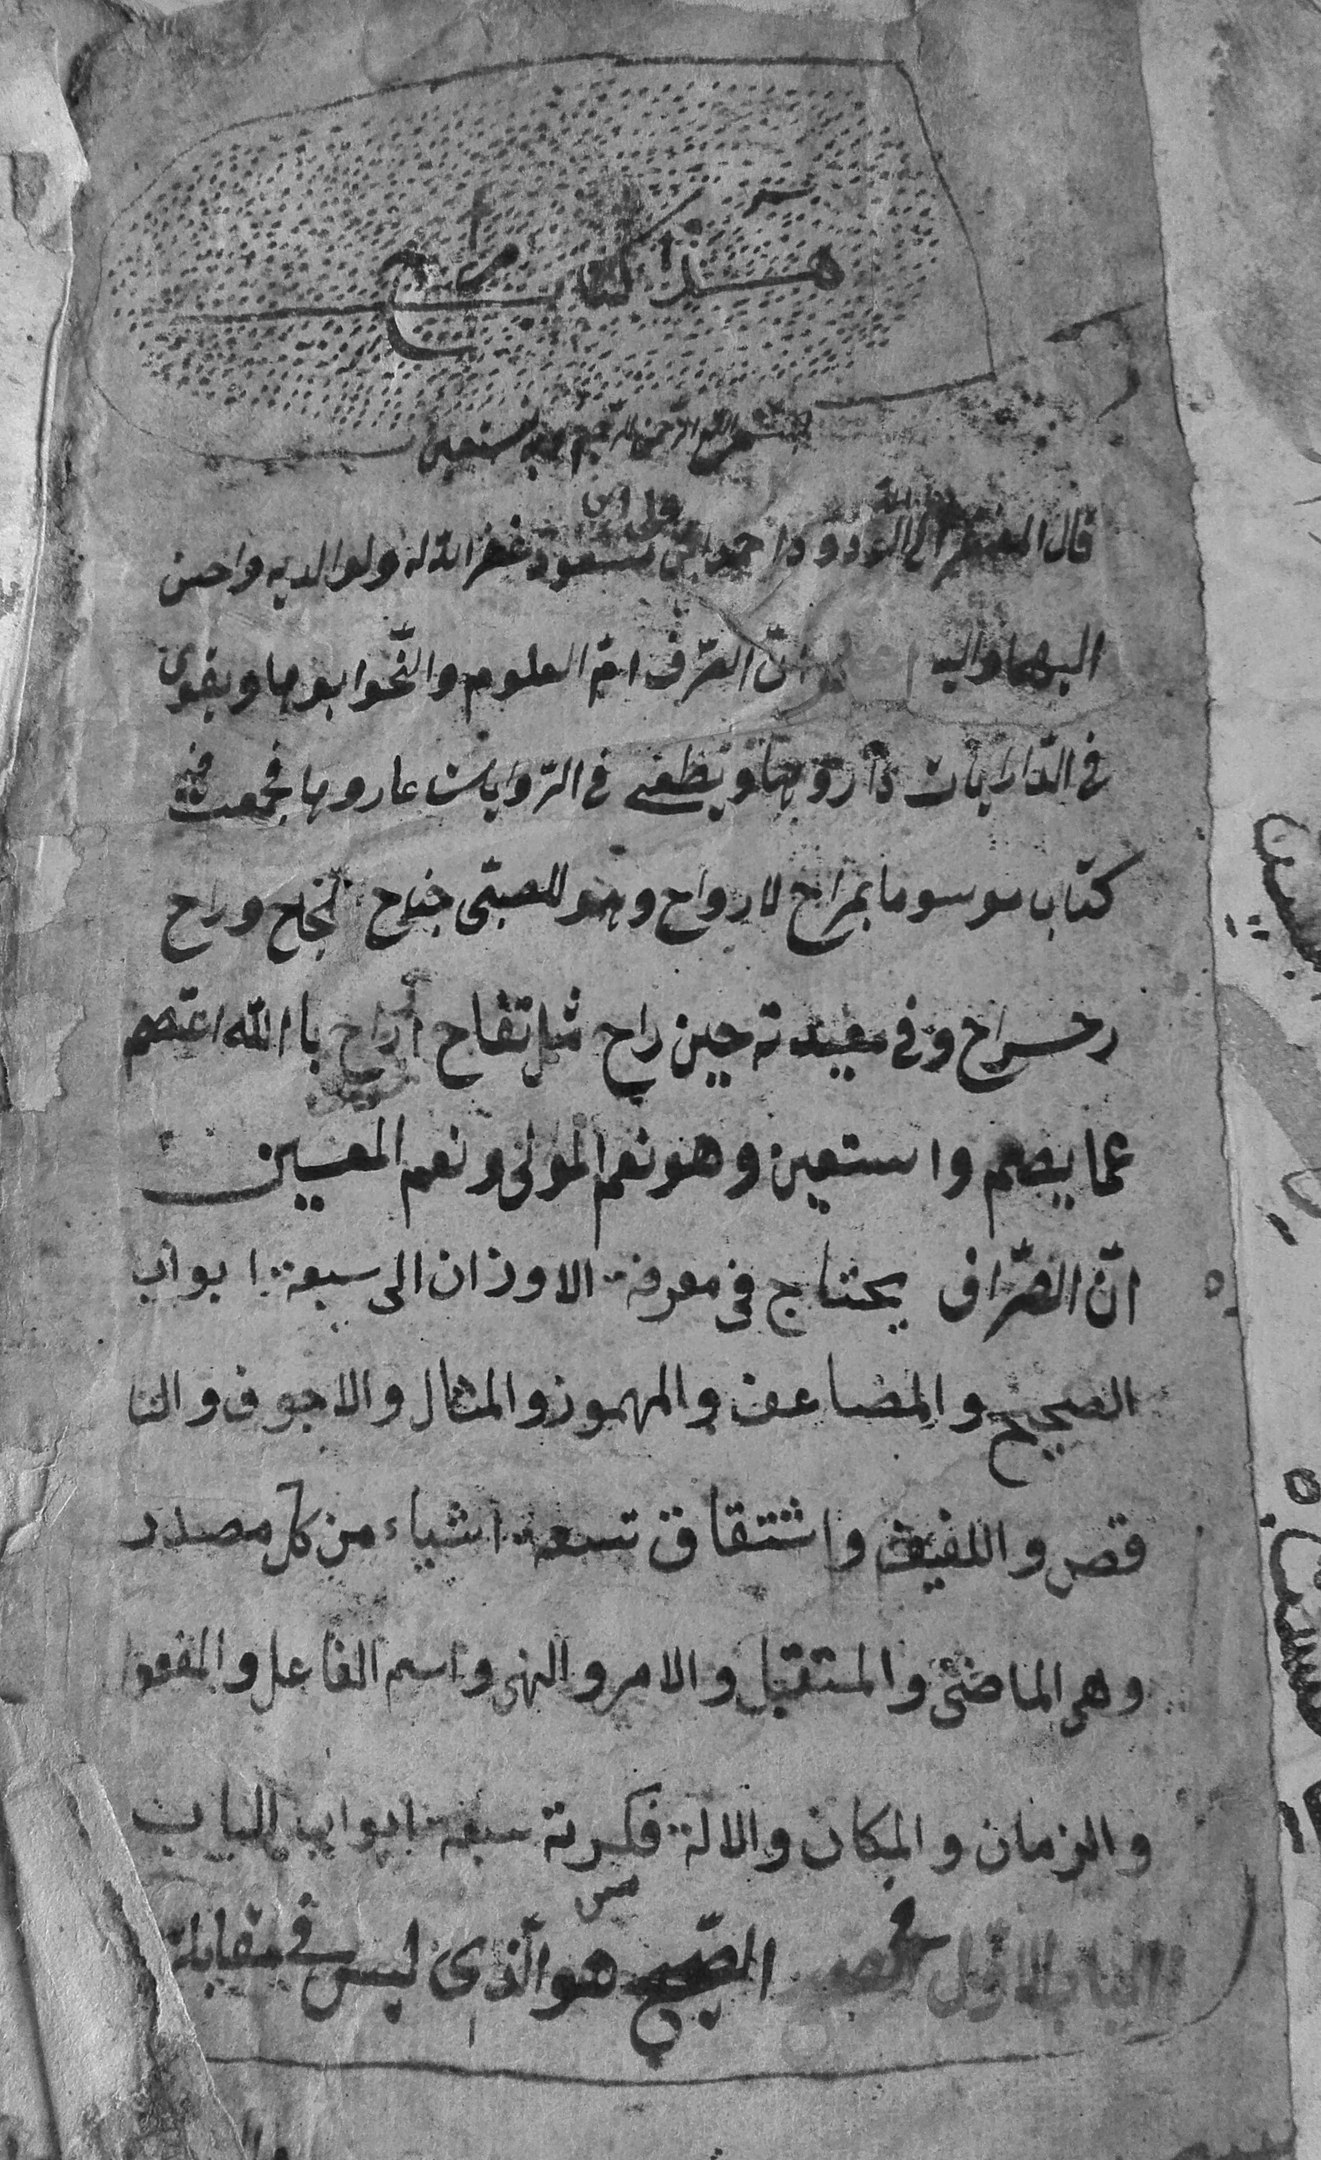 هذا كتاب مراح
بسم الله الرحمن الرحيم وبه نستعين
قال المفتقر الى الله الودود احمد ابن على ابن مسعود غفر الله له ولوالديه واحسن
اليهما واليه ان الصّرف امّ العلوم والنّحو ابوها ويقوى
فى الدّارايات داروها ويطغى فى الرّوايات عاروها فجمعت فيه
كتابا موسوما بمراح لارواح وهو للصبّى جناح النجاح وراح
رحراح وفى معيدته حين راح مثل تفّاح أراح باالله اعتصم
عما يصم واستعين وهو نعم المولى ونعم المعين
انّ الصّرّاف يحتاج فى معرفة الاوزان الى سبعة ابواب
الصحيح والمضاعف والمهموز والمثال والاجوف والنا
قص واللفيف واشتقاق تسعة اشياء من كل مصدر
وهى الماضى والمستقبل والامر والنهى واسم الفاعل والمفعو
والزمان والمكان والالة فكسرته سبعة ابواب الباب
الباب الاوّل فى الصحيح هو الّذى ليس فى مقابلة